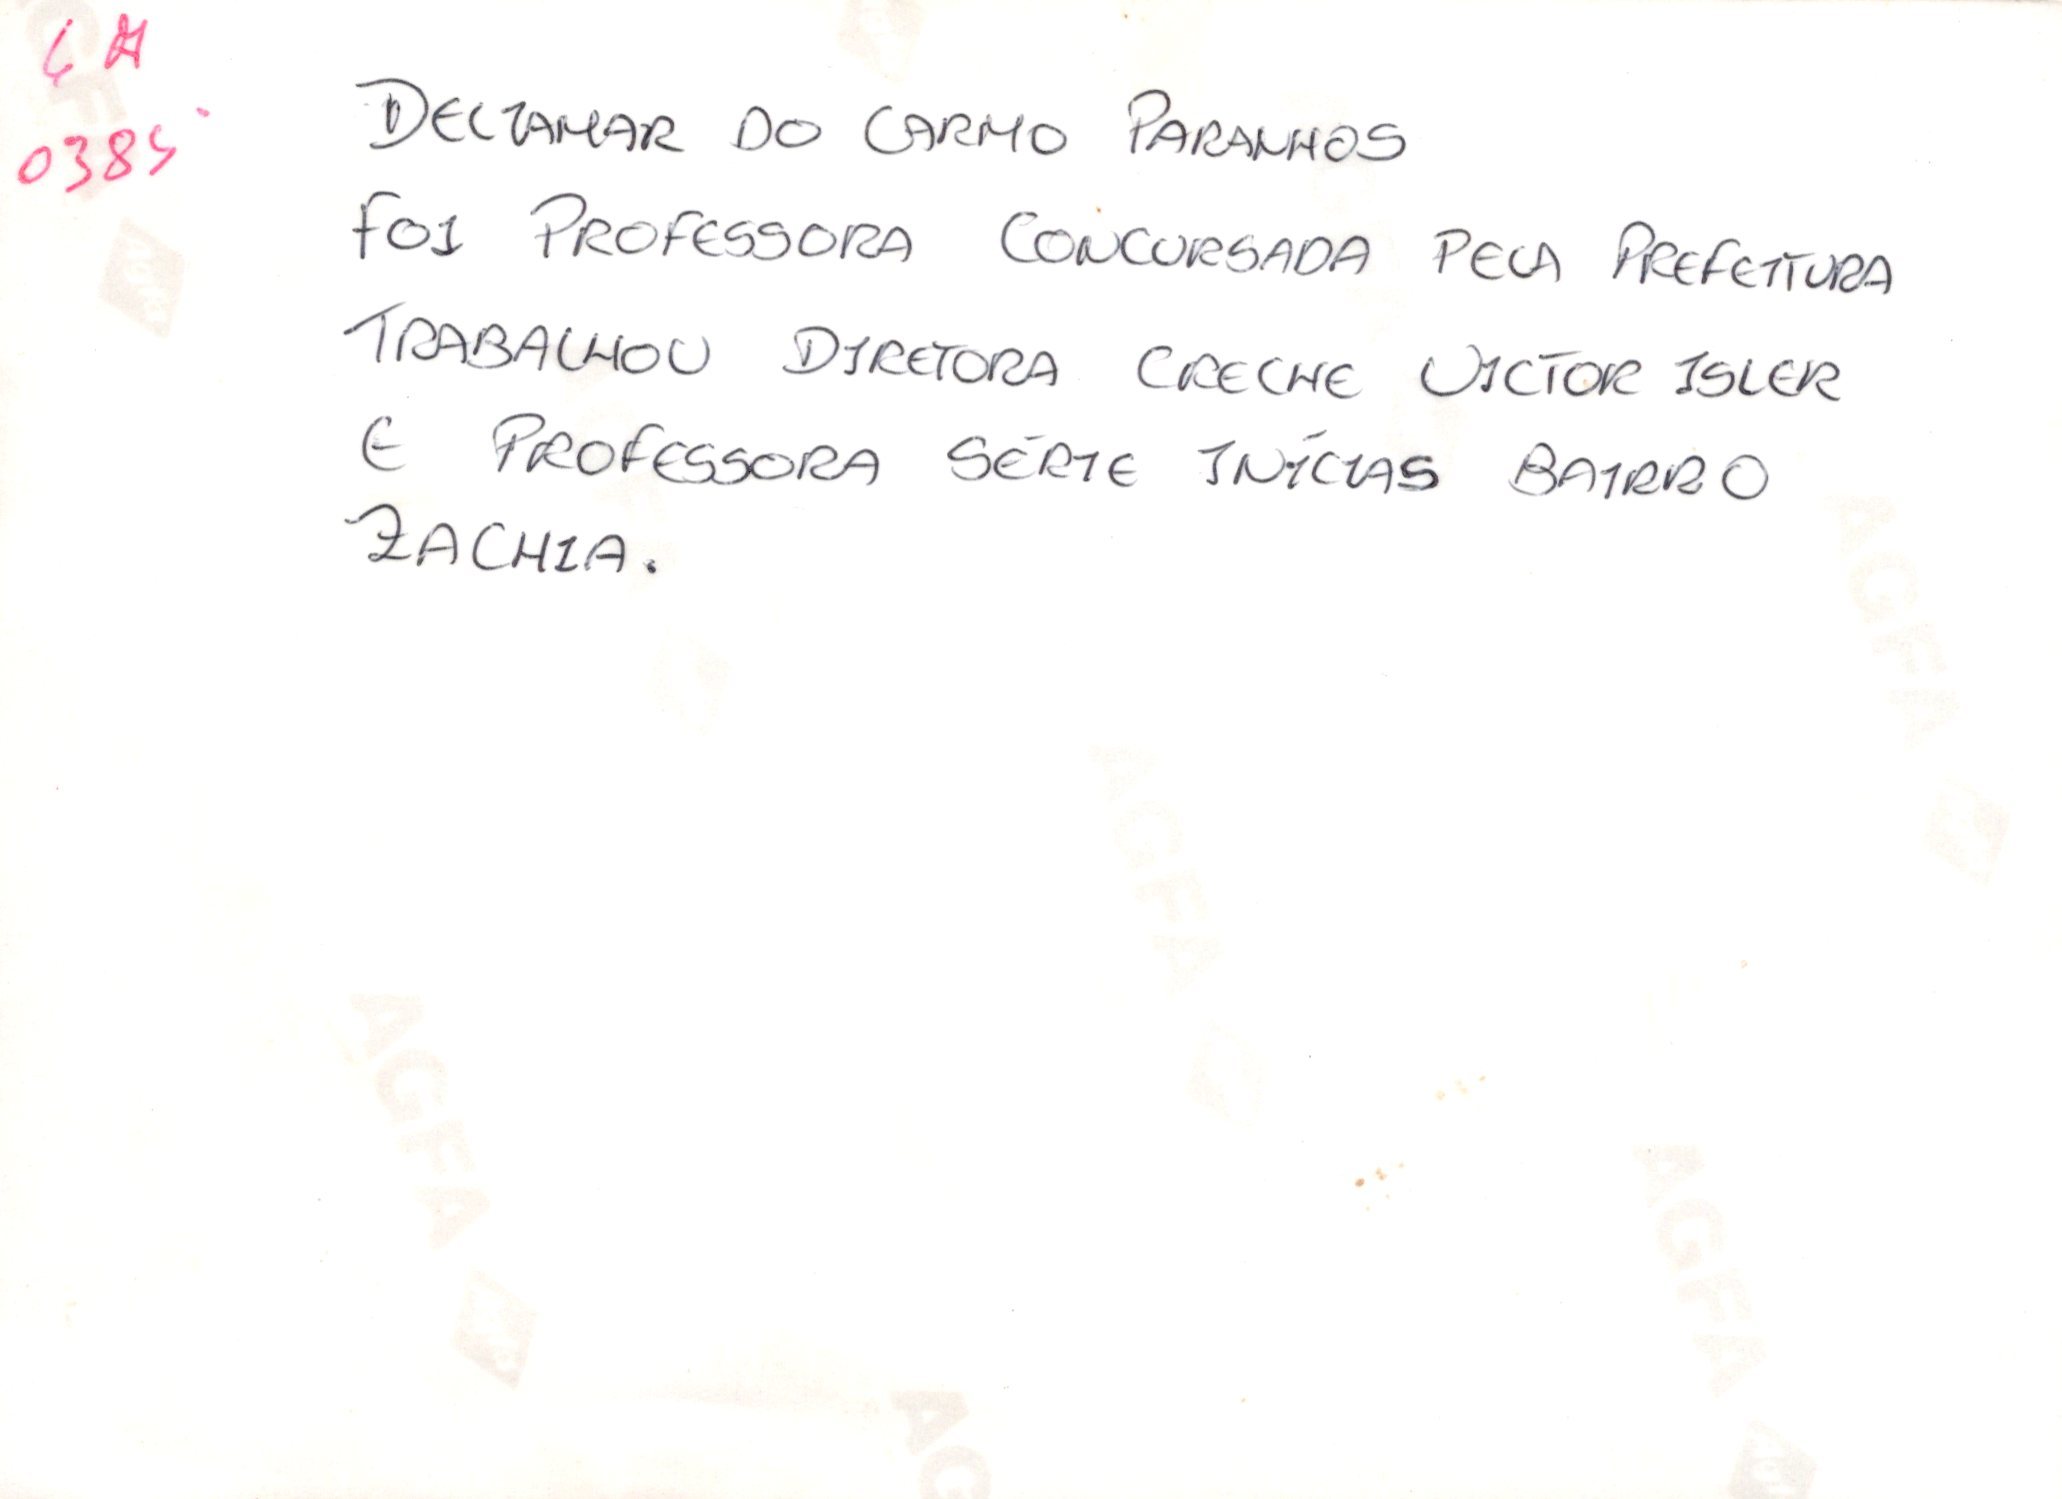 0385
DELZAMAR DO CARMO PARANHOS
FOI PROFESSORA CONCURSADA PELA PREFEITURA
TRABALHOU DIRETORA CRECHE VICTOR ISLER
E PROFESSORA SÉRIE INÍCIAS BAIRRO
ZACHIA.
AGFA
AGFA
AGFA
AGFA